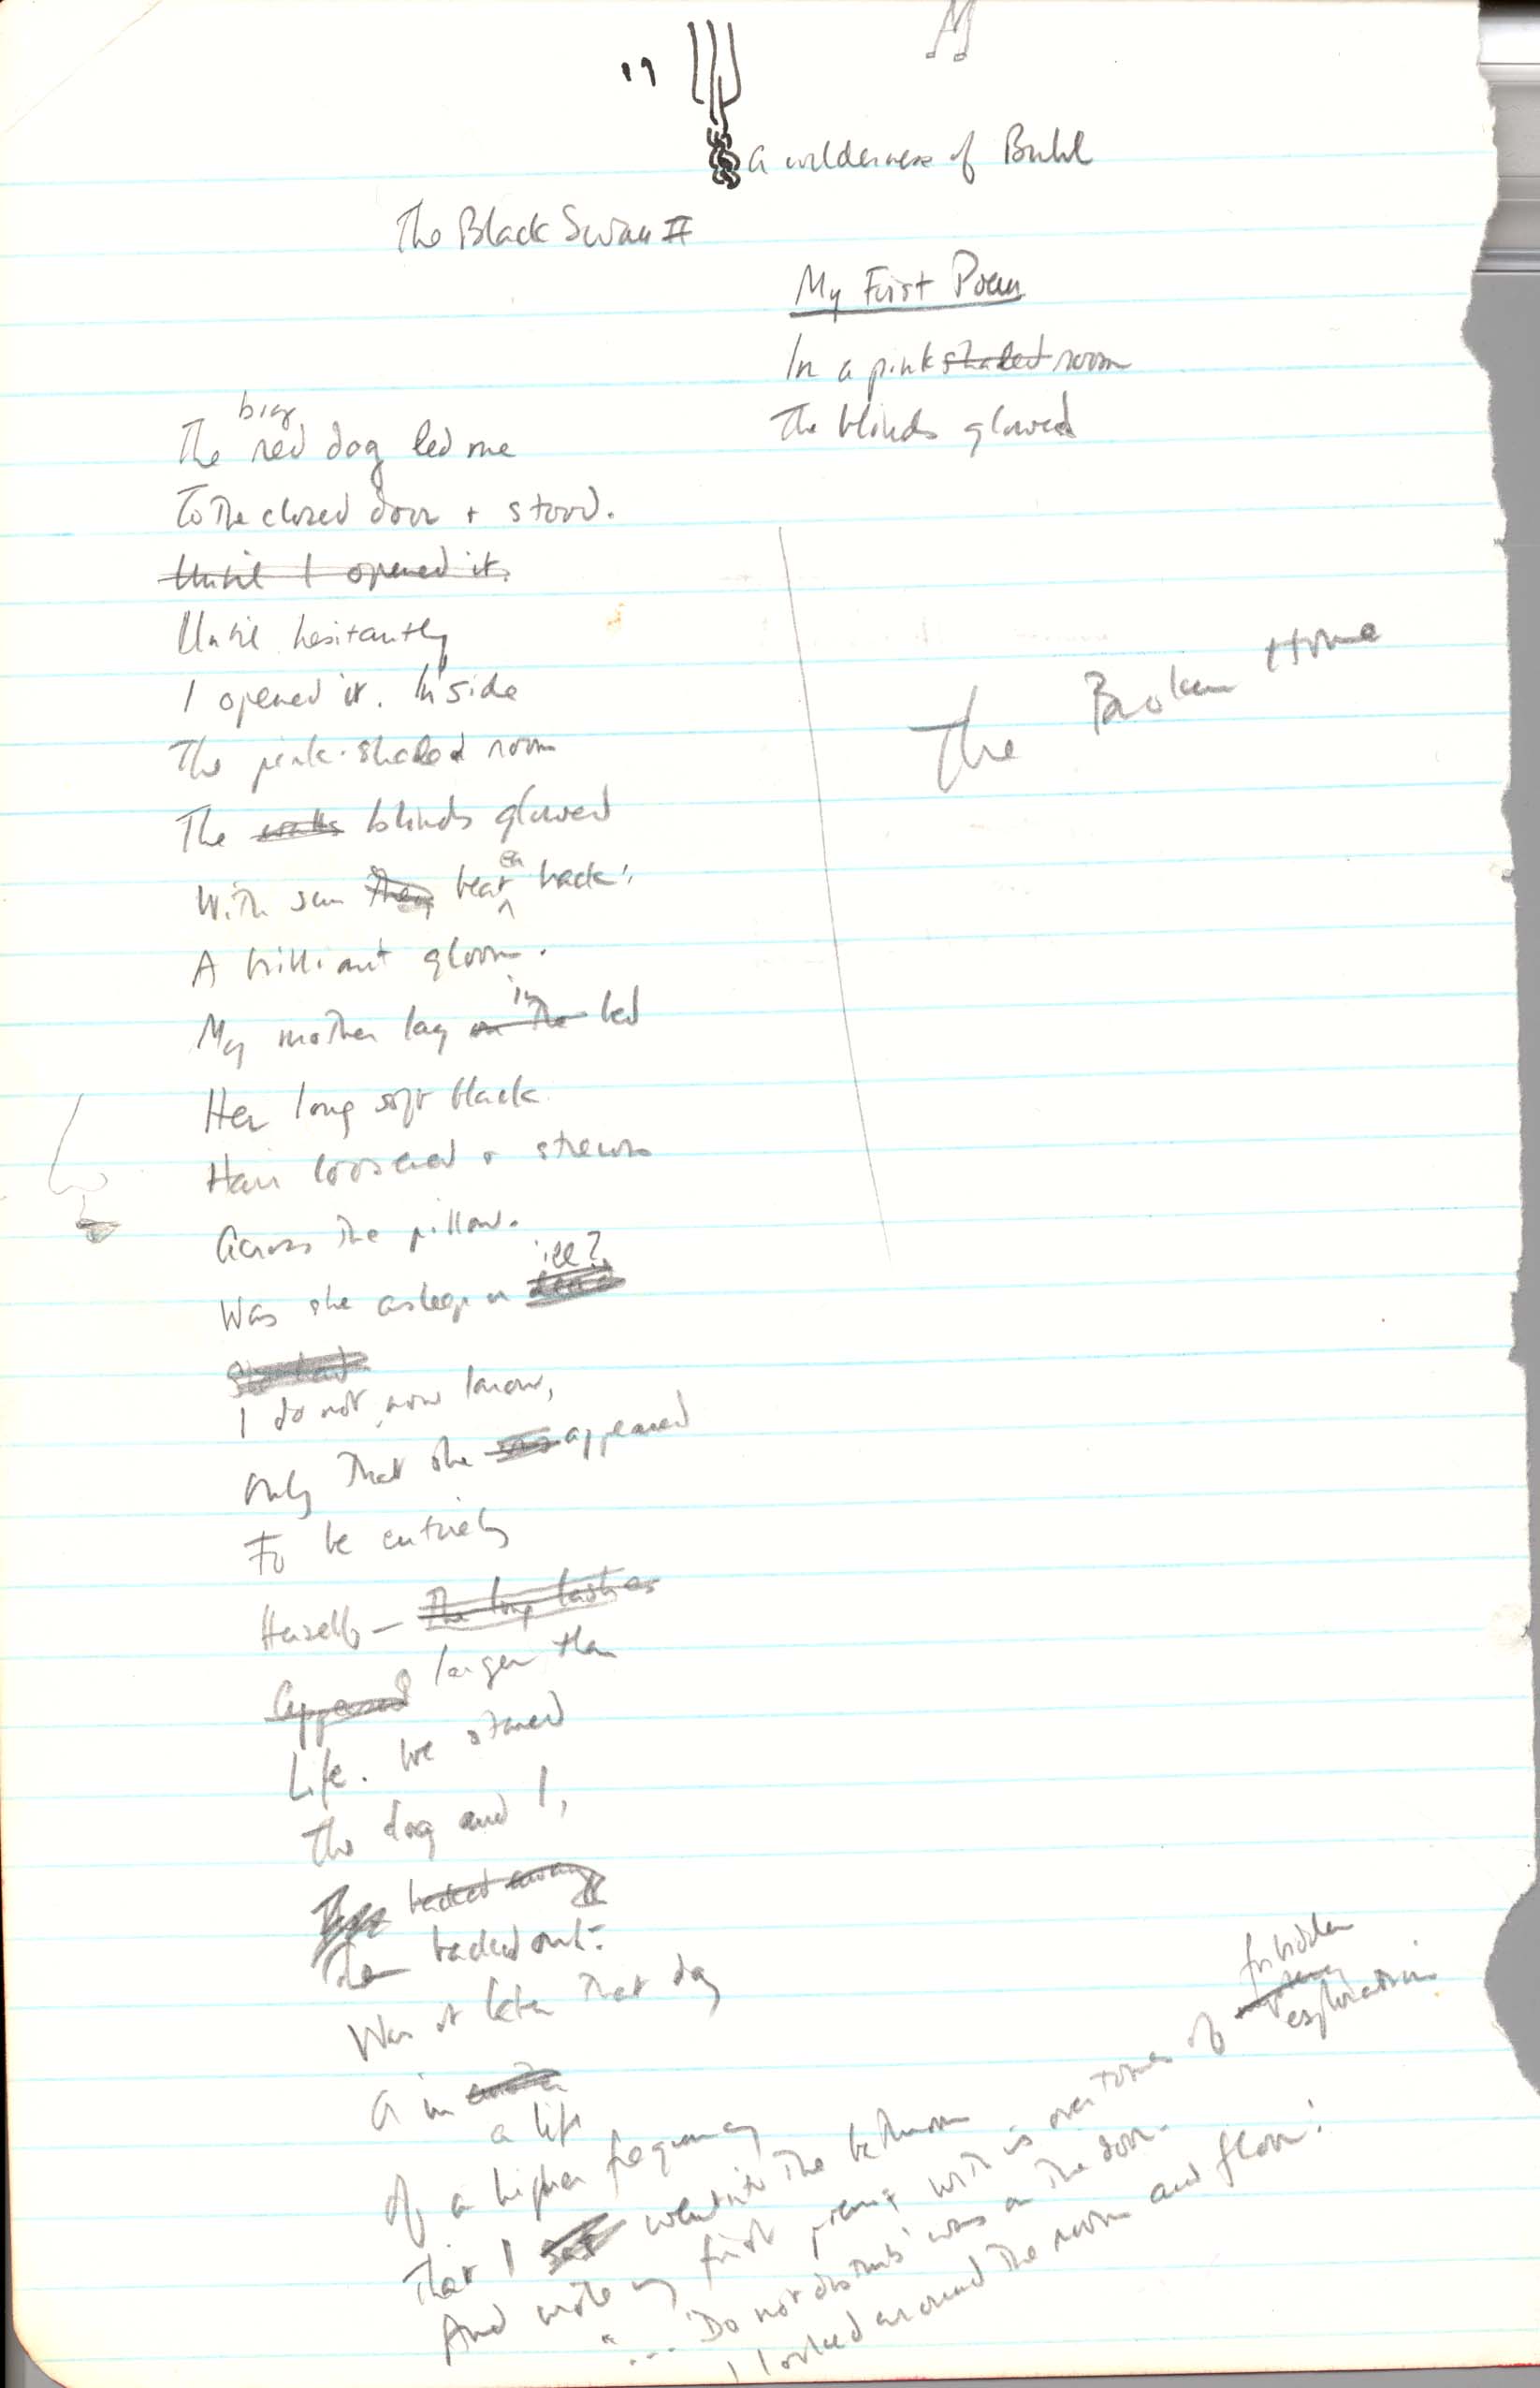 a wilderness of Buhl
The Black Swan II
My First Poem
In a pink shaded room
The blinds glowed
big
The red dog led me
To the closed door + stood.
Until I opened it.
Until hesitantly
I opened it. Inside
The pink-shaded room
The walls blinds glowed
With sun they beaten back:
A brilliant gloom.
The Broken Home
in
My mother lay on the bed
Her long soft black
Hair loosened + strewn
Across the pillow.
ill?
Was she asleep or dead
She had
I do not now know,
Only that she was appeared
To be entirely
Herself — The long lashes
Appeared larger than
Life. We stared
The dog and I,
Then backed away
Then backed out:
Was it later that day
a in
a life
Of a higher frequency
That I sat went into the bathroom
And wrote my first poem; with its overtones of forbidden exploration
"... 'Do not disturb' was on the door.
I looked around the room and floor: